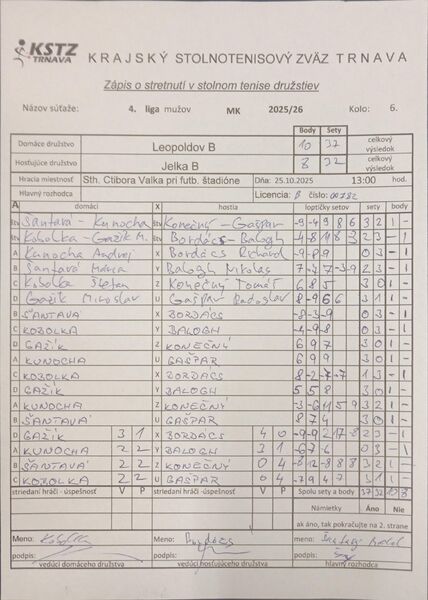 KSTZ
TRNAVA
KRAJSKÝ STOLNOTENISOVÝ ZVÄZ TRNAVA
Zápis o stretnutí v stolnom tenise družstiev
Názov súťaže: 4. liga mužov MK 2025/26 Kolo: 6.
Body Sety
Domáce družstvo Leopoldov B 10 32 celkový výsledok
Hosťujúce družstvo Jelka B 8 32 celkový výsledok
Hracia miestnosť Sth. Ctibora Valka pri futb. štadióne Dňa 25.10.2025 13:00 hod.
Hlavný rozhodca Licencia: B číslo:
A domáci X hostia loptičky setov sety body
Štv Šantavá - Kunocha Štv Konečný - Gašpar -9 -4 9 8 6 3 2 1 -
Štv Kobolka - Gažík M. Štv Bordács - Balogh 2 3 - 1
A Kunocha Andrej X Bordács Richard -9 -8 9 0 3 - 1
B Šantavá Mária Y Balogh Nikolas 2 3 - 1
C Kobolka Štefan Z Konečný Tomáš 6 8 5 3 0 1 -
D Gažík Miroslav U Gašpar Radoslav 8 -9 6 6 3 1 1 -
B ŠANTAVÁ X BORDÁCS -8 -3 -9 0 3 - 1
C KOBOLKA Y BALOGH -4 -9 -8 0 3 - 1
D GAŽÍK Z KONEČNÝ 6 9 7 3 0 1 -
A KUNOCHA U GAŠPAR 6 9 9 3 0 1 -
C KOBOLKA X BORDACS 8 -2 -7 -7 1 3 - 1
D GAŽÍK Y BALOGH 5 5 8 3 0 1 -
A KUNOCHA Z KONEČNÝ -3 -6 11 5 9 3 2 1 -
B ŠANTAVÁ U GAŠPAR 8 7 4 3 0 1 -
D GAŽÍK 3 1 X BORDACS 4 0 -9 -9 2 17 -8 2 3 - 1
A KUNOCHA 2 2 Y BALOGH 3 1 -6 -7 -6 0 3 - 1
B ŠANTAVÁ 2 2 Z KONEČNÝ 0 4 -8 -12 8 8 8 3 2 1 -
C KOBOLKA 2 2 U GAŠPAR 0 4 -7 9 4 7 3 1 1 -
striedaní hráči - úspešnosť V P striedaní hráči - úspešnosť V P Spolu sety a body 37 32 10 8
Námietky Áno Nie
ak áno, tak pokračujte na 2. strane
Meno: Kobolka Meno: Bordács meno:
podpis: podpis: podpis:
vedúci domáceho družstva vedúci hosťujúceho družstva hlavný rozhodca